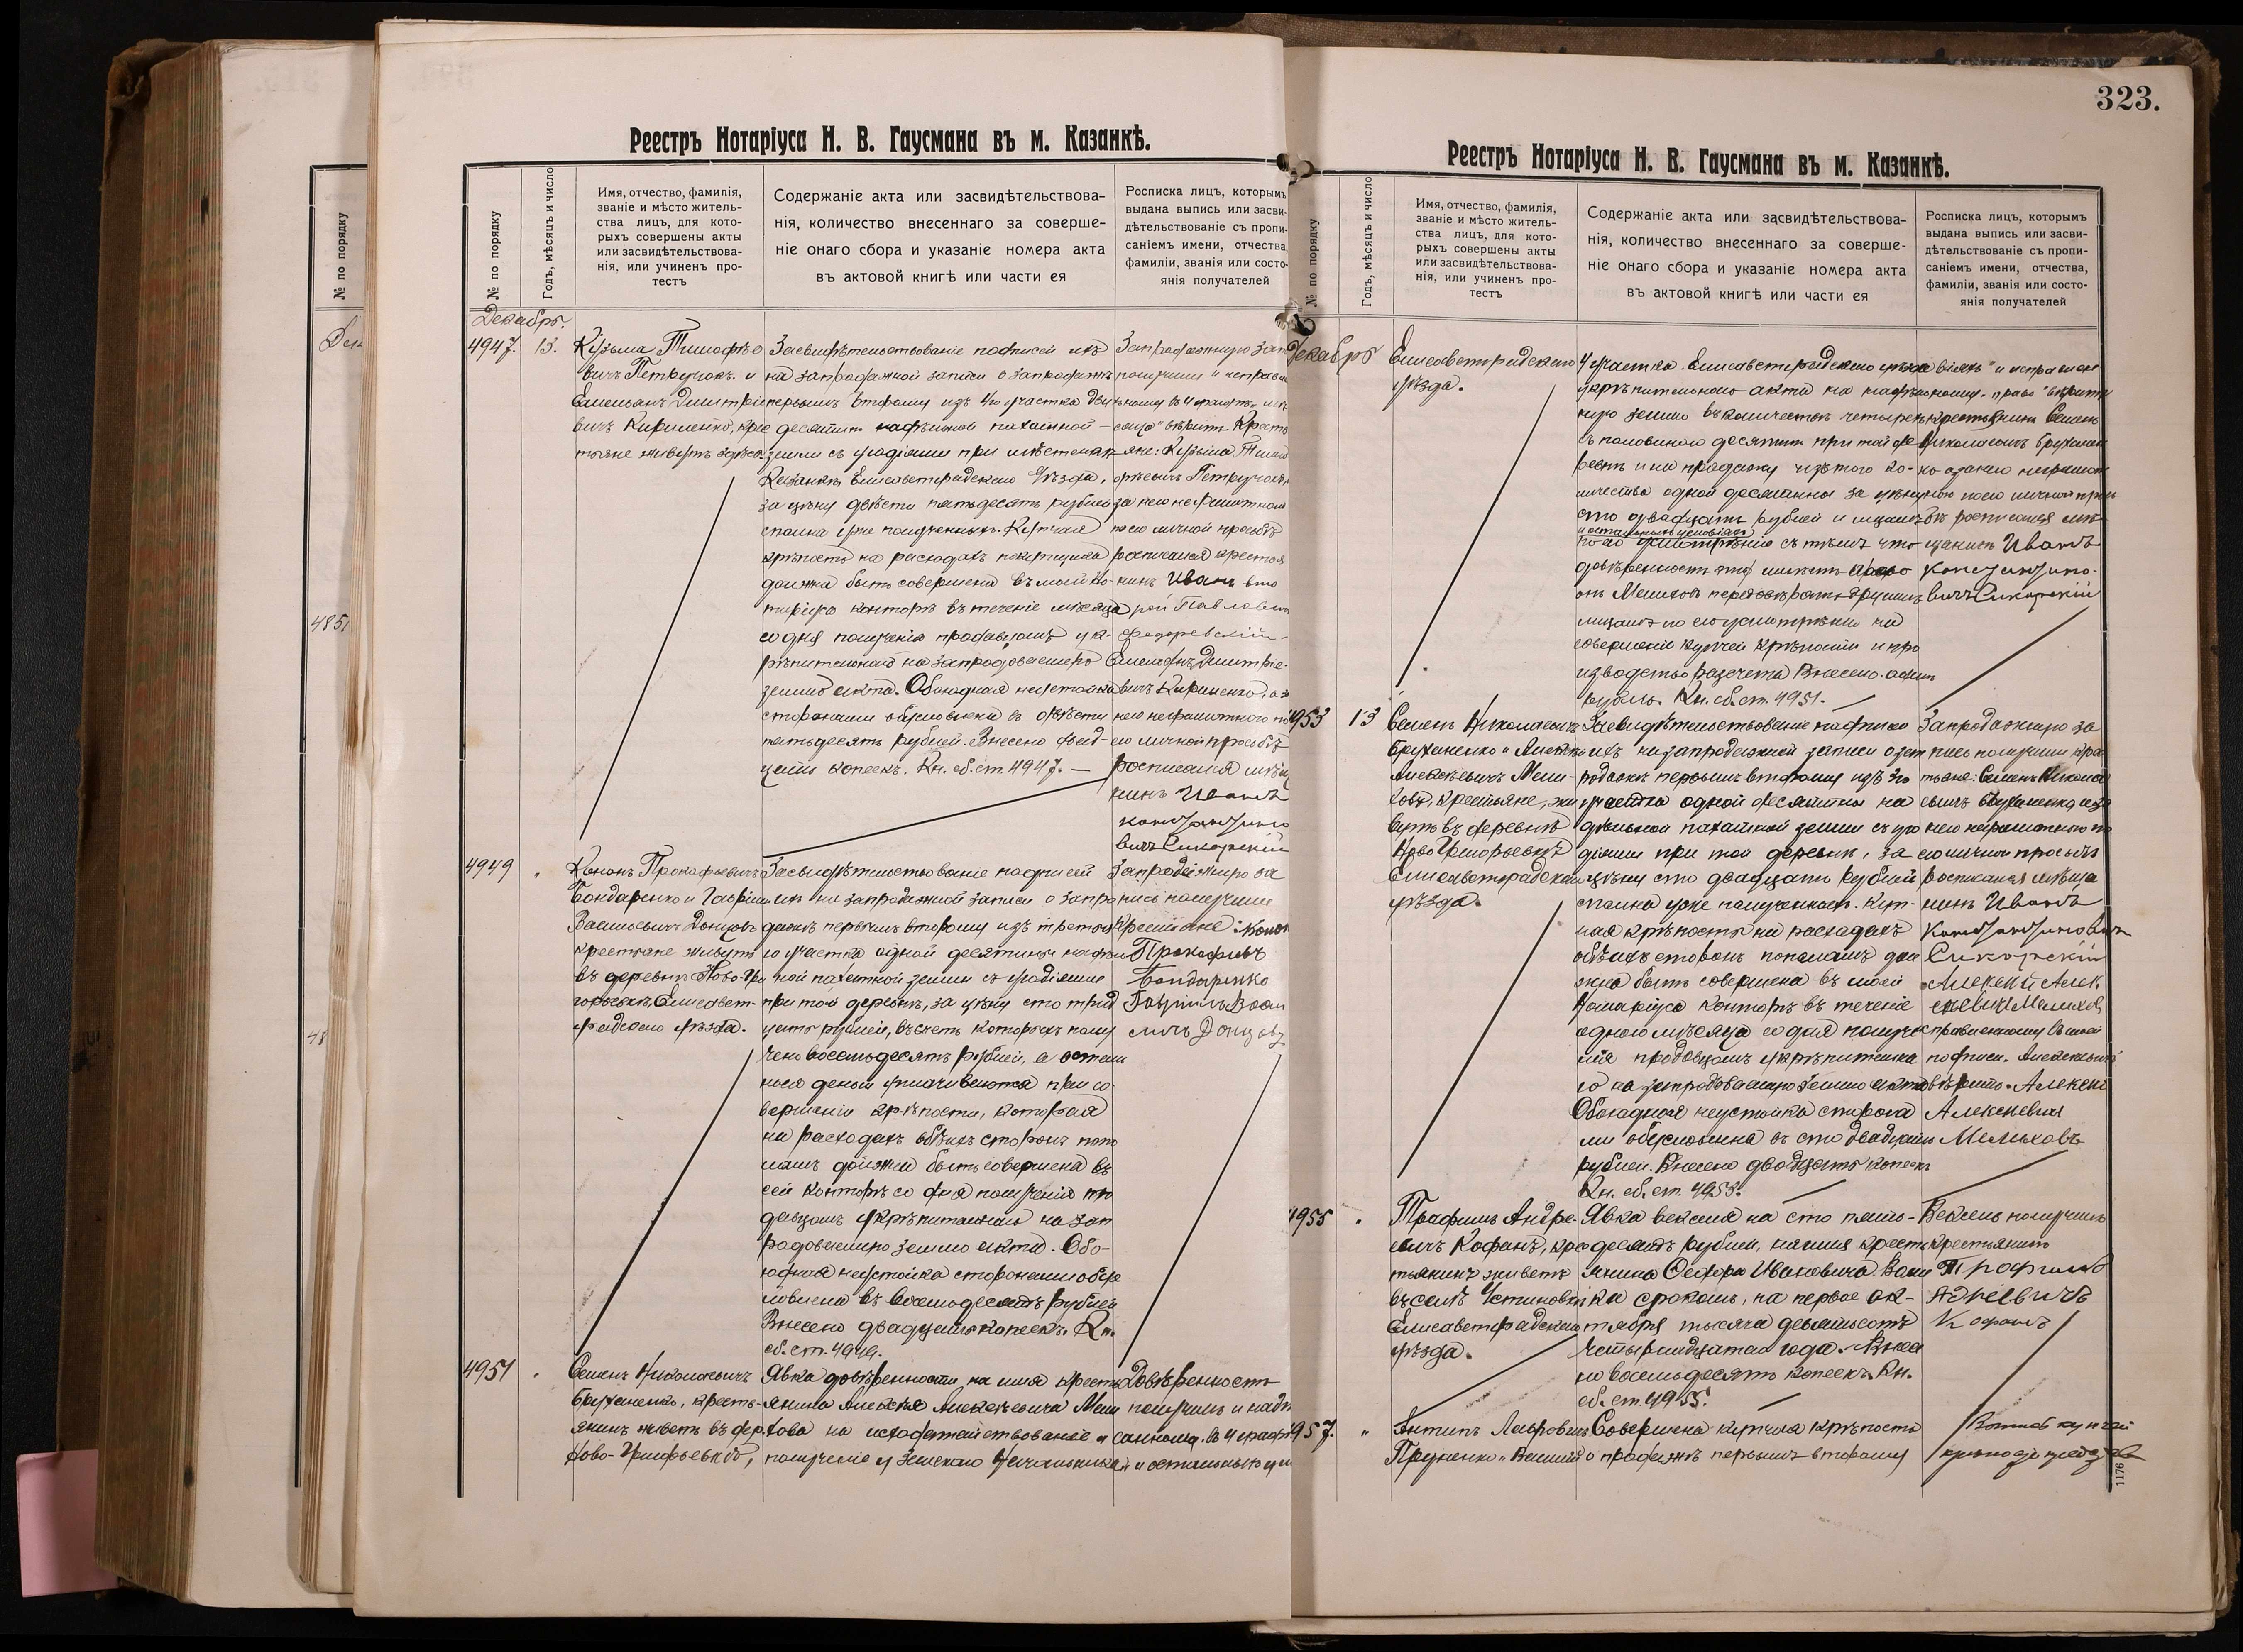 323.
Реестръ Нотаріуса Н. В. Гаусмана въ м. Казанкѣ.
№ по порядку
Годъ, мѣсяцъ и число
Имя, отчество, фамилія,
званіе и мѣсто житель-
ства лицъ, для кото-
рыхъ совершены акты
или засвидѣтельствова-
нія, или учиненъ про-
тестъ
Содержаніе акта или засвидѣтельствова-
нія, количество внесеннаго за соверше-
ніе онаго сбора и указаніе номера акта
въ актовой книгѣ или части ея
Росписка лицъ, которымъ
выдана выпись или засви-
дѣтельствованіе съ пропи-
саніемъ имени, отчества,
фамиліи, званія или состо-
янія получателей
Декабрь.
4947. 13.
Кузьма Тимофѣе
вичъ Петручокъ и
Емельянъ Дмитріе
вичъ Кириленко, кре
стьяне живутъ здѣсь
Засвидѣтельствованіе подписей ихъ
на запродажной записи о запродажѣ
первымъ второму изъ участка двѣ
десятины надѣльной пахатной
земли съ угодіями при мѣстечкѣ
Казанкѣ Елисаветградскаго Уѣзда,
за цѣну двѣсти пятьдесятъ рублей
сполна уже полученныхъ. Купчая
крѣпость на расходахъ покупщика
должна быть совершена въ моей Но-
таріуса конторѣ въ теченіе мѣсяца
со дня полученія продавцомъ ук-
рѣпительнаго на запродоваемую
землю акта. Обоюдная неустойка
сторонами обусловлена въ двѣсти
пятьдесятъ рублей. Внесено двад-
цать копеекъ. Кн. сб. ст. 4947. —
Запродажную зап
получили
яне: Кузьма Тимо
ѳѣевичъ Петручокъ
за него неграмотнаго
по его личной просьбѣ
росписался крестья
нинъ Иванъ вто
рой Павловичъ
Федоревскій
Емельянъ Дмитріе-
вичъ Кириленко, а за
него неграмотнаго по
его личной просьбѣ
росписался мѣща
нинъ Иванъ
Константино
вичъ Сикорскій
4949
Кононъ Прокофьевичъ
Бондаренко и Гаврiилъ
Васильевичъ Донцовъ
крестьяне живутъ
въ деревнѣ Ново-Гри
горьевкѣ, Елисавет-
градскаго уѣзда.
Засвидѣтельствованіе подписей
ихъ на запродажной записи о запро
дажѣ первымъ второму изъ третья
го участка одной десятины надѣль
ной пахатной земли съ угодіями
при той деревнѣ, за цѣну сто трид
цать рублей, въ счетъ которыхъ полу
чено восемьдесятъ рублей, а осталь
ныя деньги уплачиваются при со-
вершеніи крѣпости, которая
на расходахъ обѣихъ сторонъ попо
ламъ должна быть совершена въ
сей конторѣ со дня полученія про
давцомъ укрѣпительнаго на зап
родоваемую землю акта. Обо-
юдная неустойка сторонами обус
ловлена въ восемьдесятъ рублей
Внесено двадцать копеекъ. Кн.
сб. ст. 4949.
Запродажную за
пись получили
крестьяне: Конон
Прокофьевъ
Бондаренко
Гаврiилъ Васи
личъ Донцовъ
4951
Семенъ Николаевичъ
Брухаленко, кресть-
янинъ живетъ въ дер.
Ново-Григорьевкѣ,
Явка довѣренности на имя кресть
янина Алексѣя Алексѣевича Меш
кова на исходатайствованіе и
полученіе у Земскаго Начальника
Довѣренность
получилъ
4851
Реестръ Нотаріуса Н. В. Гаусмана въ м. Казанкѣ.
№ по порядку
Годъ, мѣсяцъ и число
Имя, отчество, фамилія,
званіе и мѣсто житель-
ства лицъ, для кото-
рыхъ совершены акты
или засвидѣтельствова-
нія, или учиненъ про-
тестъ
Содержаніе акта или засвидѣтельствова-
нія, количество внесеннаго за соверше-
ніе онаго сбора и указаніе номера акта
въ актовой книгѣ или части ея
Росписка лицъ, которымъ
выдана выпись или засви-
дѣтельствованіе съ пропи-
саніемъ имени, отчества,
фамиліи, званія или состо-
янія получателей
Декабрь
Елисаветградскаго
уѣзда.
4 участка Елисаветградскаго уѣзда
укрѣпительнаго акта на надѣль
ную землю въ количествѣ четырехъ
съ половиною десятинъ при той же
ревнѣ и на продажу изъ того ко-
личества одной десятины за цѣну
сто двадцать рублей
по его усмотрѣнію съ тѣмъ что
довѣренность эту имѣетъ право
лицамъ по его усмотрѣнію на
совершеніе купчей крѣпости и про
изводство расчета Внесено одинъ
рубль. Кн. сб. ст. 4951. —
крестьянинъ Семенъ
Николаевичъ Брухален
ко а за него неграмот
наго по его личной прось
бѣ росписался мѣ-
щанинъ Иванъ
Константино-
вичъ Сикорскій
4953 13
Семенъ Николаевичъ
Брухаленко и Алексѣй
Алексѣевичъ Меш-
ковъ, крестьяне, жи
вутъ въ деревнѣ
Ново Григорьевкѣ
Елисаветградскаго
уѣзда.
Засвидѣтельствованіе подписи
ихъ на запродажной записи о зап
родажѣ первымъ второму изъ 3го
участка одной десятины на
дѣльной пахатной земли съ уго
діями при той деревнѣ, за
цѣну сто двадцать рублей
сполна уже полученныхъ. Куп-
чая крѣпость на расходахъ
обѣихъ сторонъ пополамъ дол
жна быть совершена въ моей
Нотаріуса конторѣ въ теченіе
одного мѣсяца со дня получе
нія продавцомъ укрѣпительна
го на запродоваемую землю акта
Обоюдная неустойка сторона
ми обусловлена въ сто двадцать
рублей. Внесено двадцать копеекъ
Кн. сб. ст. 4953.
Запродажную за
пись получили крес
тьяне: Семенъ Никола
евичъ Брухаленко а за
него неграмотнаго по
его личной просьбѣ
росписался мѣща
нинъ Иванъ
Константиновичъ
Сикорскій
Алексѣй Алек
подписи.
вѣрить. Алексей
Алексеевич
4955
Трофимъ Андре-
евичъ Кофанъ, крес
тьянинъ живетъ
въ селѣ Устиновкѣ
Елисаветградскаго
уѣзда.
Явка векселя на сто пять-
десятъ рублей, на имя кресть
янина Федора Ивановича
срокомъ, на первое ок-
тября тысяча девятьсотъ
четырнадцатаго года. Внесе
но восемьдесятъ копеекъ. Кн.
сб. ст. 4955.
Вексель получилъ
крестьянинъ
Трофимъ
Адреевичъ
Кофанъ
4957. "
Антипъ Лавровичъ
Совершена купчая крѣпость
о продажѣ первымъ второму
1176